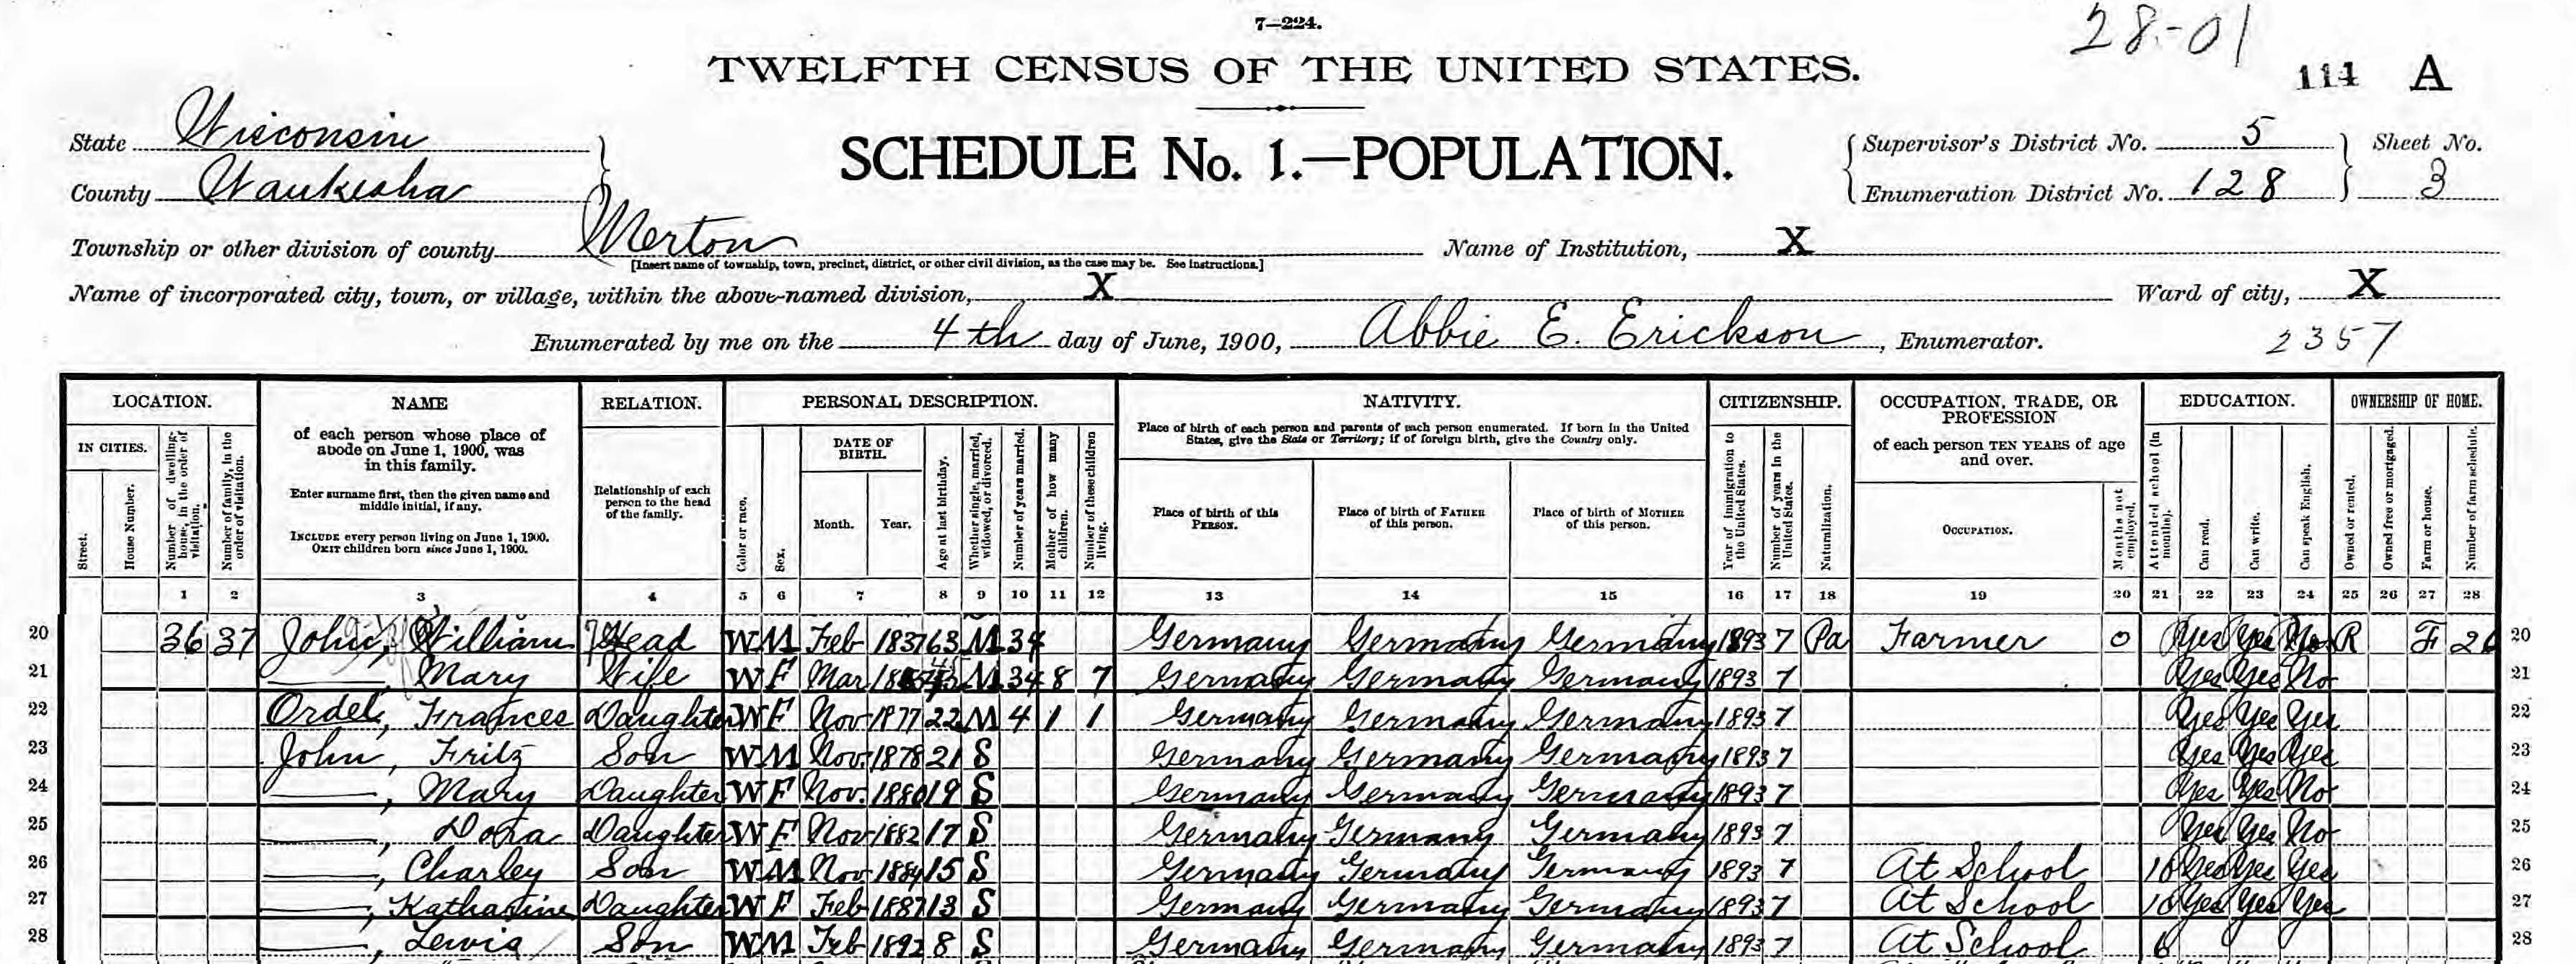 7—224.
28-01
TWELFTH CENSUS OF THE UNITED STATES.
114 A
State Wisconsin
County Waukesha
SCHEDULE No. 1.—POPULATION.
Supervisor's District No. 5
Enumeration District No. 128
Sheet No.
3
Township or other division of county Merton
Name of Institution, X
[Insert name of township, town, precinct, district, or other civil division, as the case may be. See instructions.]
Name of incorporated city, town, or village, within the above-named division, X
Ward of city, X
Enumerated by me on the 4th day of June, 1900, Abbie E. Erickson, Enumerator.
2357
LOCATION.
IN CITIES.
Street.
House Number.
Number of dwelling-house, in the order of visitation.
Number of family, in the order of visitation.
NAME
of each person whose place of
abode on June 1, 1900, was
in this family.
Enter surname first, then the given name and
middle initial, if any.
INCLUDE every person living on June 1, 1900.
OMIT children born since June 1, 1900.
RELATION.
Relationship of each
person to the head
of the family.
PERSONAL DESCRIPTION.
Color or race.
Sex.
DATE OF
BIRTH.
Month.
Year.
Age at last birthday.
Whether single, married, widowed, or divorced.
Number of years married.
Mother of how many children.
Number of these children living.
NATIVITY.
Place of birth of each person and parents of each person enumerated. If born in the United
States, give the State or Territory; if of foreign birth, give the Country only.
Place of birth of this
PERSON.
Place of birth of FATHER
of this person.
Place of birth of MOTHER
of this person.
CITIZENSHIP.
Year of immigration to the United States.
Number of years in the United States.
Naturalization.
OCCUPATION, TRADE, OR
PROFESSION
of each person TEN YEARS of age
and over.
OCCUPATION.
Months not employed.
EDUCATION.
Attended school (in months).
Can read.
Can write.
Can speak English.
OWNERSHIP OF HOME.
Owned or rented.
Owned free or mortgaged.
Farm or house.
Number of farm schedule.
1 2 3 4 5 6 7 8 9 10 11 12 13 14 15 16 17 18 19 20 21 22 23 24 25 26 27 28
20 36 37 John, William Head W M Feb 1837 63 M 34 Germany Germany Germany 1893 7 Pa Farmer 0 Yes Yes No R F 26 20
21 ——, Mary Wife W F Mar M 34 8 7 Germany Germany Germany 1893 7 Yes Yes No 21
22 Ordel, Frances Daughter W F Nov 1877 22 M 4 1 1 Germany Germany Germany 1893 7 Yes Yes Yes 22
23 John, Fritz Son W M Nov. 1878 21 S Germany Germany Germany 1893 7 Yes Yes Yes 23
24 ——, Mary Daughter W F Nov. 1880 19 S Germany Germany Germany 1893 7 Yes Yes No 24
25 ——, Dora Daughter W F Nov 1882 17 S Germany Germany Germany 1893 7 Yes Yes No 25
26 ——, Charley Son W M Nov 1884 15 S Germany Germany Germany 1893 7 At School 10 Yes Yes Yes 26
27 ——, Katharine Daughter W F Feb 1887 13 S Germany Germany Germany 1893 7 At School 10 Yes Yes Yes 27
28 ——, Lewis Son W M Feb 1892 8 S Germany Germany Germany 1893 7 At School 6 28